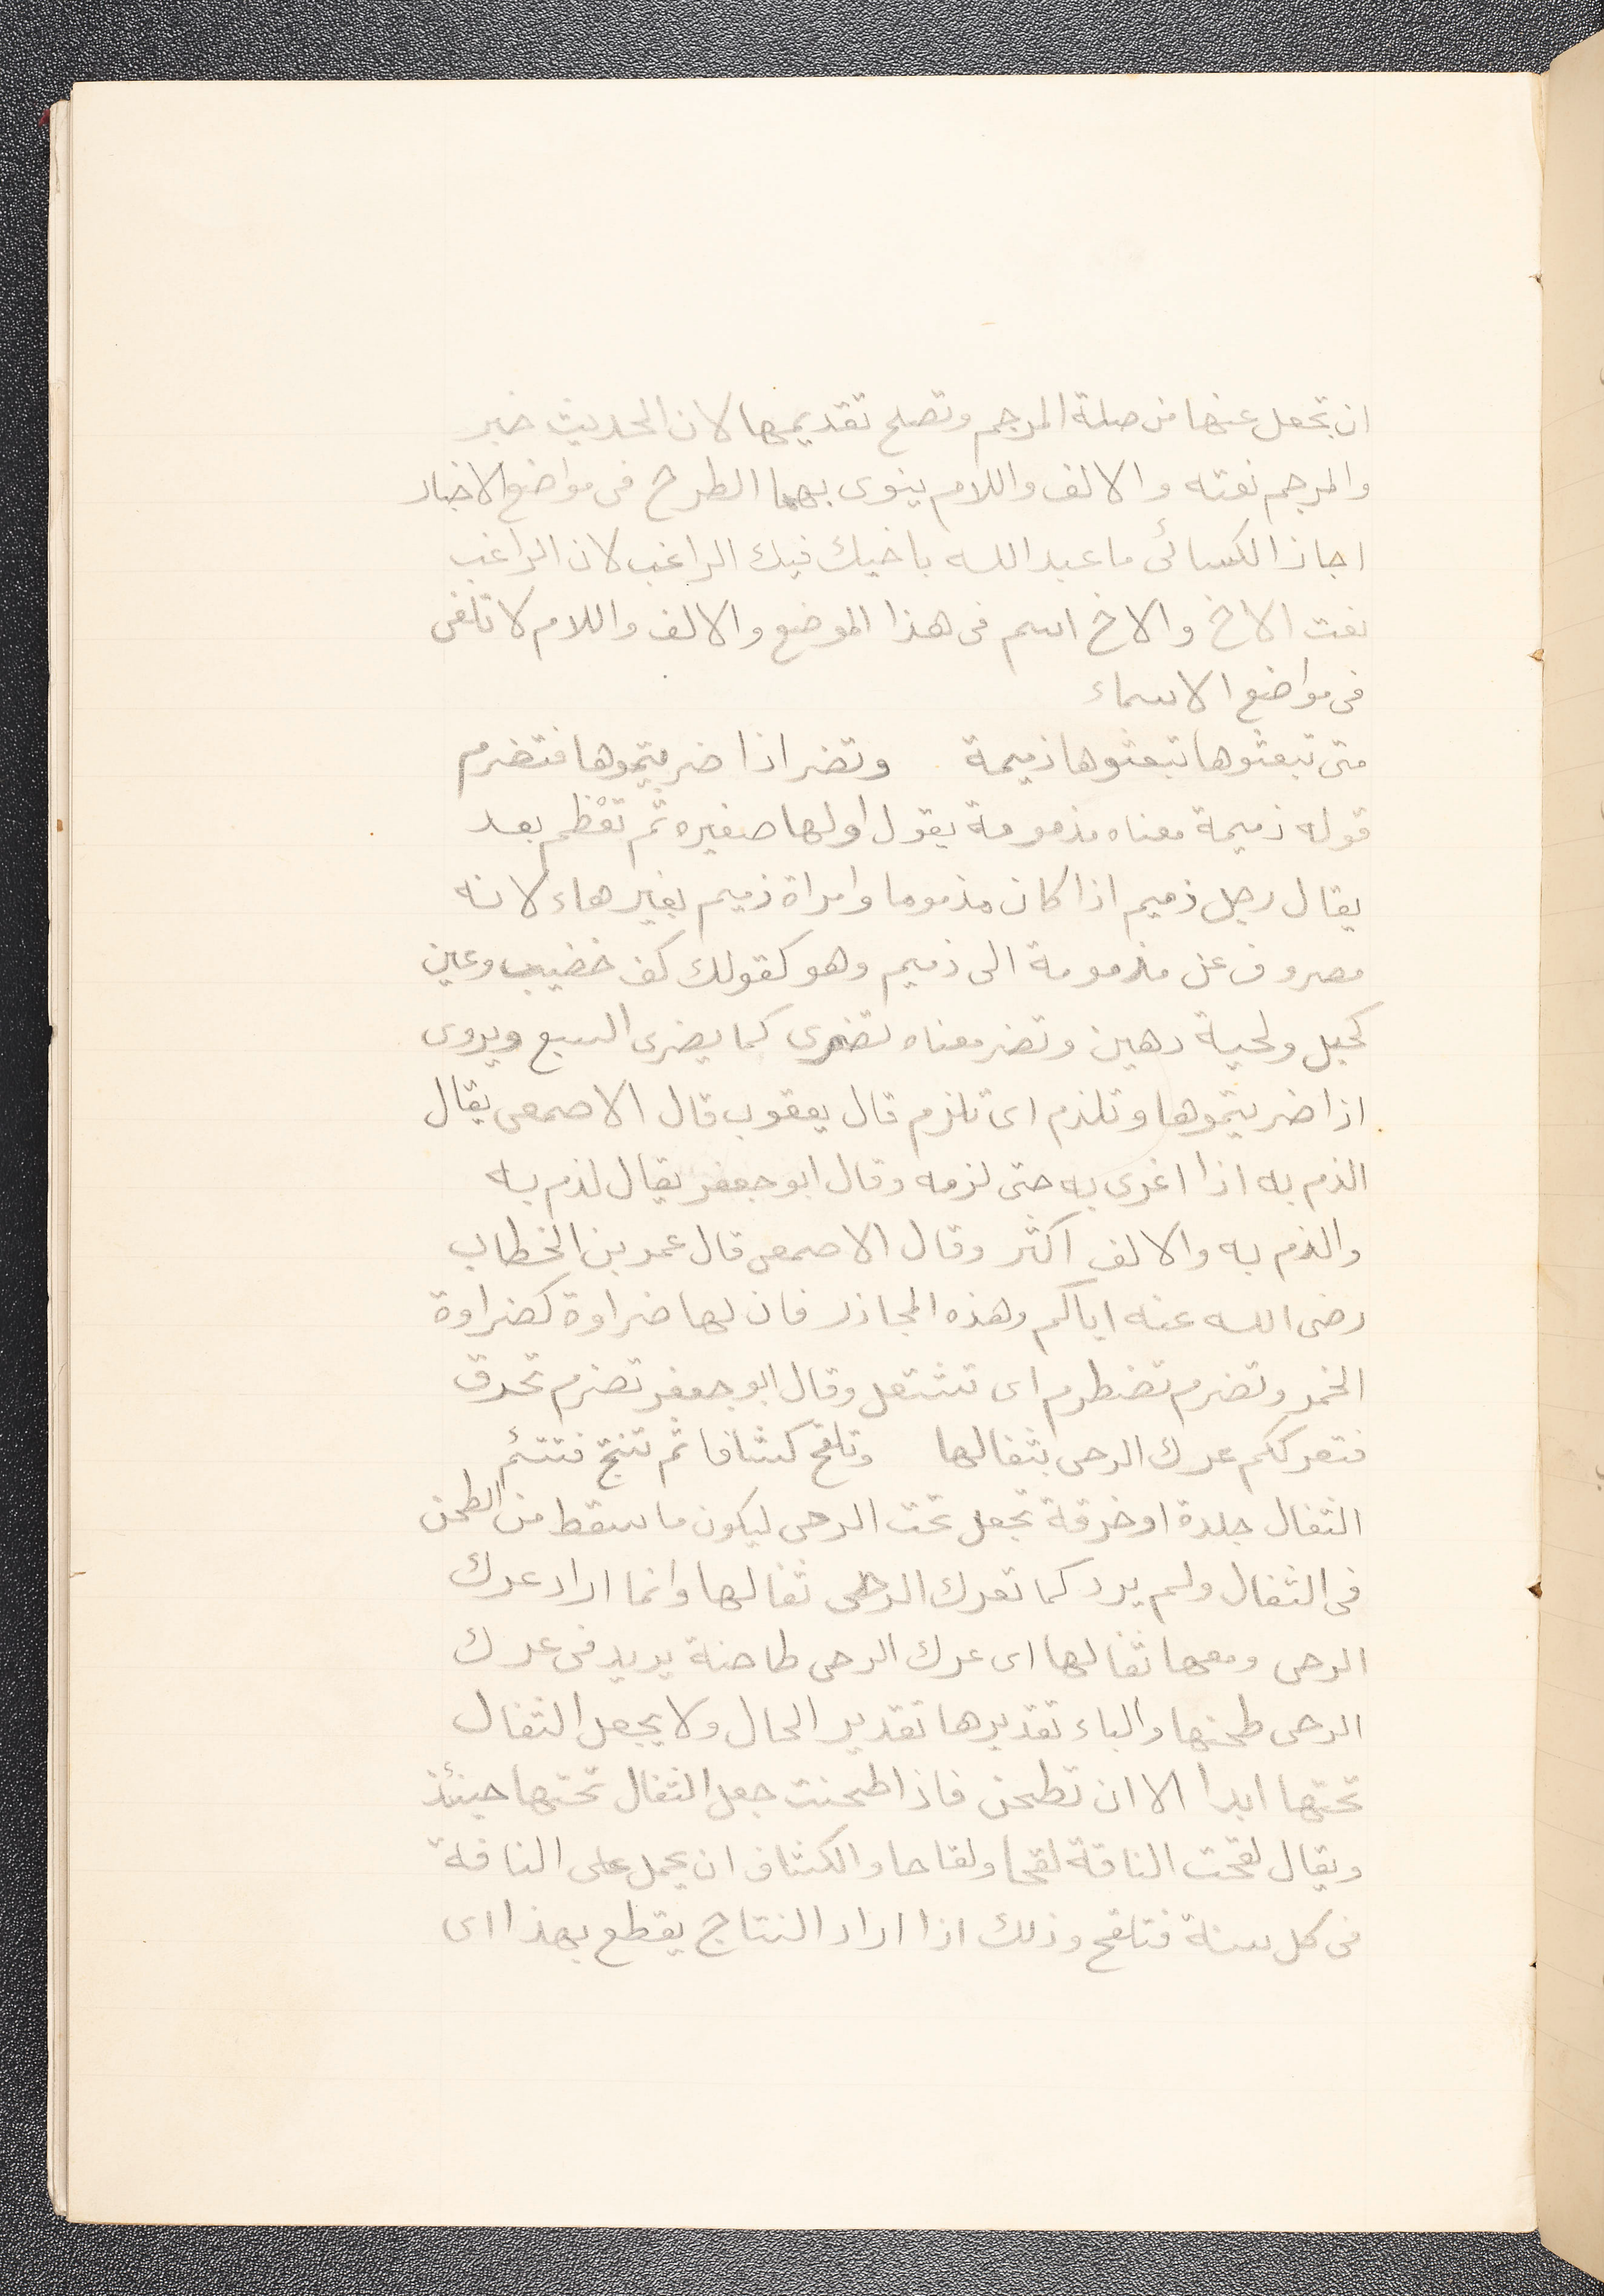 ان تجعل عنها من صلة المرجم وتصلح تقديمها لان الحديث خبر
والمرجم نعته والالف واللام ينوى بهما الطرح فى مواضع الاخبار
اجاز الكسائى ما عبد الله باخيك فيك الراغب لان الراغب
نعت الاخ والاخ اسم فى هذا الموضع والالف واللام لا تلغى
فى مواضع الاسماء
متى تبعثوها تبعثوها ذميمة وتضر اذا ضريتموها فتضرم
قوله ذميمة معناه مذمومة يقول اولها صغيره ثم تعظم بعد
يقال رجل ذميم اذا كان مذموما وامراة ذميم بغير هاء لانه
مصروف عن مذمومة الى ذميم وهو كقولك كف خضيب وعين
كحيل ولحية دهين وتضر معناه تضرى كما يضرى السبع ويروى
اذا ضريتموها وتلذم اى تلزم قال يعقوب قال الاصمعى يقال
الذم به اذا اغرى به حتى لزمه وقال ابو جعفر يقال لذم به
والذم به والالف اكثر وقال الاصمعى قال عمر بن الخطاب
رضى الله عنه اياكم وهذه المجازر فان لها ضراوة كضراوة
الخمر وتضرم تضطرم اى تشتعل وقال ابو جعفر تضرم تحرق
فتعرككم عرك الرحى بثفالها وتلقح كشافا ثم تنتج فتتئم
الثفال جلدة او خرقة تجعل تحت الرحى ليكون ما سقط من الطحن
فى الثفال ولم يرد كما تعرك الرحى ثفالها وانما اراد عرك
الرحى ومعها ثفالها اى عرك الرحى طاحنة يريد فى عرك
الرحى طحنها والباء تقديرها تقدير الحال ولا يجعل الثفال
تحتها ابدا الا ان تطحن فاذا طحنت جعل الثفال تحتها حينئذ
ويقال لقحت الناقة لقحا ولقاحا والكشاف ان يحمل على الناقة
فى كل سنة فتلقح وذلك اذا اراد النتاج يقطع بهذا اى